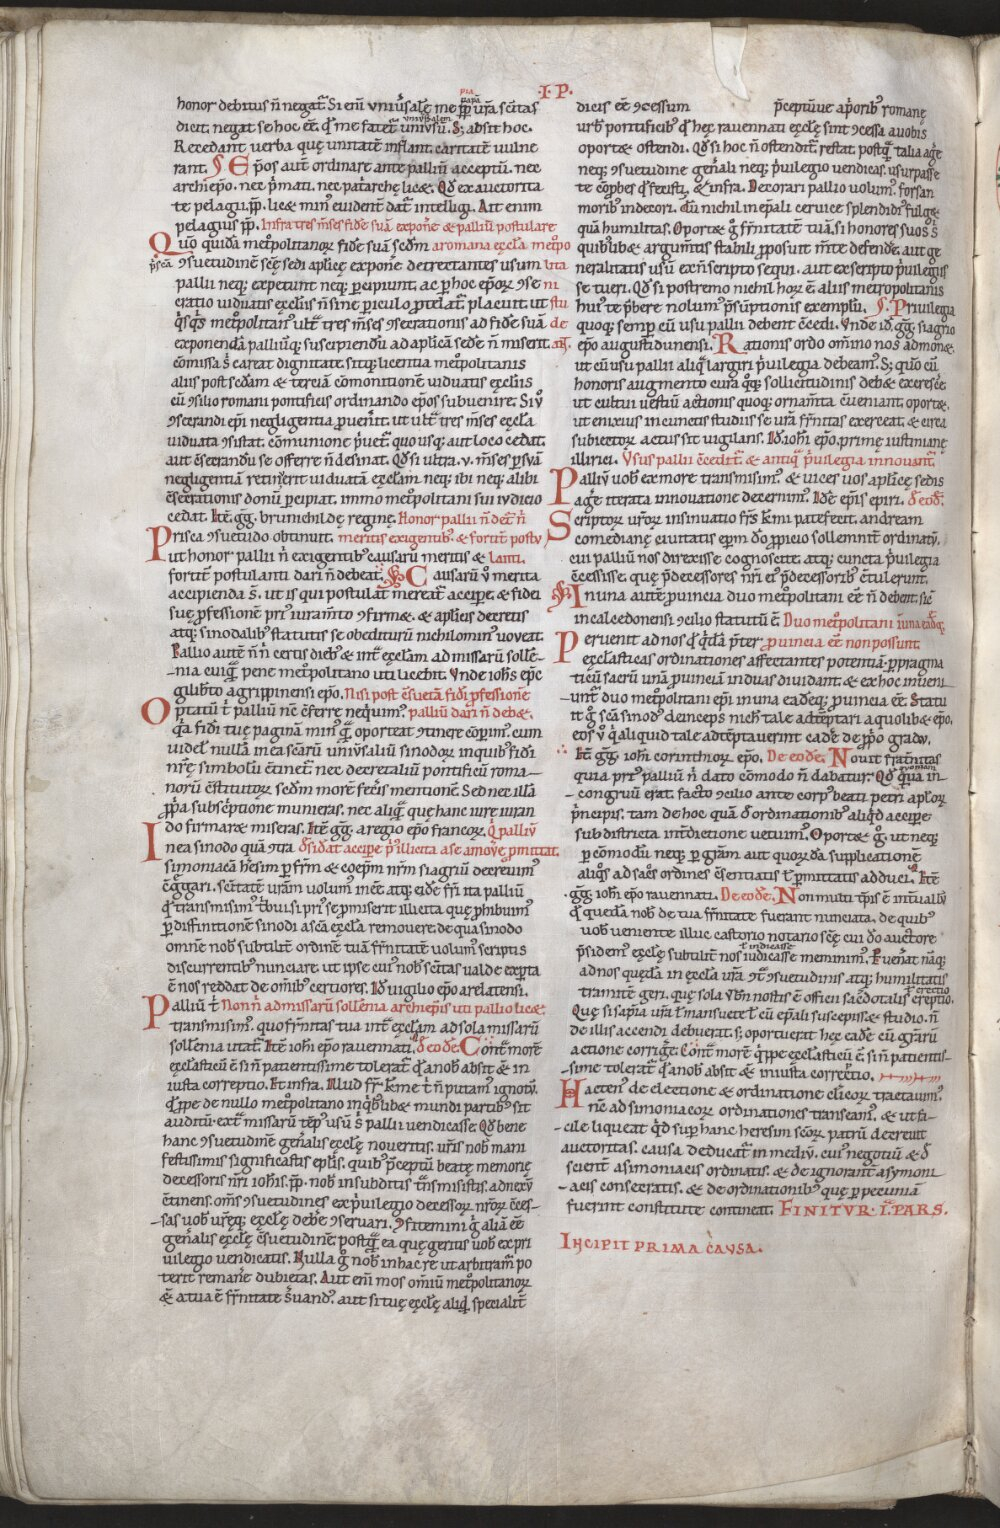 .I.P.
honor debitus n̄ negat̄. Si eni᷒ vniũsalē me p̄p̄ ur̄a sc̄itas
dicit. negat se hoc ēē. qđ me fatet̄ uniũsū. S; absit hoc.
Recedant verba quę unitatē inflant. caritatē uulne
rant. Ep̄os aut̄ ordinare ante palliū acceptū. nec
archiep̄o. nec p̄mati. nec pat̄archę licet. Qđ ex auctorita
te pelagii p̄p̄. licet min᷒ euident̄ dat̄ intelligi. Ait enim
pelagius p̄p̄. Infra tres m̄ses fidē suā expon̄e et palliū postulare
Quō quidā met̄politanoꝝ fidē suā sc̄dm a romana ęccl̄a met̄po
ꝯsuetudinē sc̄ę sedi aplicę expon̄e detrectantes usum lita
pallii neq; expetunt neq; p̄cipiunt. ac p̄ hoc ep̄oꝝ ꝯse ni
cratio uiduatis ęccl̄iis n̄ sine p̄iculo p̄telat̄. placuit. ut stu
q̄sq̄s met̄politan᷒ ult̄ tres m̄ses ꝯsecrationis ad fidē suā de
exponendā palliūq; suscipiendū ad aplicā sedē n̄ miserit.
cōmissa s̄ careat dignitate. sitq; licentia met̄politanis
aliis post sc̄dam et terciā cōmonitionē uiduatis ęccl̄iis
cū ꝯsilio romani pontificis ordinando ep̄os subuenire. Si ů
ꝯsecrandi ep̄i negligentia p̄uen̄it. ut ult̄ tres m̄ses ęccl̄a
uiduata ꝯsistat. cōmunione p̄uet̄. quo usq; aut loco cedat.
aut cōsecrandū se offerre n̄ desinat. Qđ si ultra .v. m̄ses p̄ suā
negligentiā retin̄erit uiduatā ęccl̄am. neq; ibi neq; alibi
cōsecrationis donū p̄cipiat. immo met̄politani sui iudicio
cedat. Itē .gg. brunichildę reginę. Honor pallii n̄ det̄ n̄
Prisca ꝯsuetudo obtinuit. meritis exigentib; et fortit̄ postu
ut honor pallii n̄ exigentib; causarū meritis et lanti.
fortit̄ postulanti dari n̄ debeat. Causarū ů merita
accipienda s̄. ut is qui postulat mereat̄ accipe. et fidei
suę p̄fessionē pri᷒ iuram̄to ꝯfirmet. et aplicis decretis
atq; sinodalib; statutis se obediturū nichilomin᷒ uoueat.
Pallio autē n̄ n̄ certis dieb; et int̄ ęccl̄am ad missarū sollē-
-nia cuiq̄ pene met̄politano uti licebit. Vnde ioh̄s ep̄c
gilib̄to agrippinensi ep̄o. Nisi post cōsuetā fidei p̄fessionē
Optatū t̄ palliū nc̄ cōferre neq̄uim᷒. palliū dari n̄ debet.
q̄a fidei tuę paginā min᷒ q̄ oporteat ꝯtinere cop̄im᷒. cum
uidel; nullā in ea sc̄arū uniũsaliū sinodoꝝ in quib; fidei
nr̄ę simbolū cōtinet̄. nec decretaliū pontificū roma-
norū cōstitutoꝝ. sc̄dm morē fec̄is mentionē. Sed nec illā
p̄p̄a subsc̄ptione munieras. nec aliq̄ quę hanc iure iuran
do firmaret miseras. Itē .gg. aregio ep̄o francoꝝ. Q̊ palliū
In ea sinodo quā ꝯtra đsidat accipe p̄᷒ illicita a se amouȩ̄ pmittat.
simoniacā h̄esim p̄ frm̄ et coep̄m nr̄m siagriū decreuim᷒
cōg̃gari. sc̄itatē ur̄am uolum᷒ in ēē. atq; eidē fr̄i ita palliū
qđ transmisim᷒ t̄buisi. pri᷒ se p̄miserit illicita quę p̄hibuim᷒
p̄ diffinitionē sinodi a sc̄a ęccl̄a remouere. de qua sinodo
omnē nob̄ subtilit̄ ordinē tuā fr̄nitatē uolum᷒ scriptis
discurrentib; nunciare. ut ipse cui᷒ nob̄ sc̄itas ualde exp̄ta
ē nos reddat de om̄ib; certiores. Iđ uigilio ep̄o arelatensi.
Palliū t̄ Non n̄ ad missarū sollēnia archiep̄is uti pallio licet.
transmisim᷒. quo fr̄nitas tua int̄ ęccl̄am ad sola missarū
sollēnia utat̄. Itē ioh̄i ep̄o rauennati. đ eođē. Cont̄ morē
ęccl̄asticū ē si n̄ patientissime tolerat̄ qđ a nob̄ absit et in
iusta correptio. Et infra. Illud fr̄. kme t̄ n̄ putam᷒ ignotū.
q̄ p̄pe de nullo met̄politano in q̄b;libet mundi partib; sit
auditū. ext̄ missarū tēp᷒ usū s̄ pallii uendicasse. Qđ bene
hanc ꝯsuetudinē gen̄alis ęccl̄ę noueritis. ur̄is nob̄ mani
festissimis significastis ep̄lis. quib; p̄ceptū beatę memorię
decessoris nr̄i ioh̄is .p̄p̄. nob̄ in subditis trn̄smisistis. adnexū
ꝯtinens. om̄s ꝯsuetudines ex p̄uilegio decessoꝝ nr̄oꝝ cōces-
-sas uob̄ ur̄ęq; ęccl̄ę deb̄e ꝯseruari. ꝯsitemini g̊ aliā ēē
gen̄alis ęccl̄ę cōsuetudinē. postq̄ ea quę geritis uob̄ ex pri
uilegio uendicatis. Nulla g̊ nob̄ in hac re ut arbitram̄ po
terit reman̄e dubietas. Aut eni᷒ mos om̄iū met̄politanoꝝ
et a tua ē fr̄nitate s̄uand᷒. aut si tuę ęccl̄ę aliq̄ specialit̄
dicis ēē ꝯcessum p̄ceptū ue a p̄orib; romanę
urb̄ pontificib; qđ hęc rauennati ęccl̄ę sint ꝯcessa a uobis
oportet ostendi. Qđ si hoc n̄ ostendit̄. restat. postq̄ talia ag̊e
neq; ꝯsuetudine gen̄ali neq; p̄uilegio uendicas. usurpasse
te cōp̄bes qđ fecisti. et infra. Decorari pallio uolum᷒. forsan
morib; indecori. Cū nichil in ep̄ali ceruice splendidi᷒ fulget
quā humilitas. Oportet g̊ fr̄nitatē tuā. si honores suos s̄
quibuslibet argum̄tis stabili p̄posuit m̄te defendet. aut ge
neralitatis usū ex n̄ scripto sequi. aut ex scripto p̄uilegiis
se tueri. Qđ si postremo nichil hoꝝ ē. aliis metropolitanis
hui᷒ te p̄bere nolum᷒ p̄sūptionis exemplū. Priuilegia
quoq; semp̄ cū usu pallii debent cōcedi. Vnde iđ .gg. siagrio
ep̄o augustidunensi. Rationis ordo om̄ino nos admonet.
ut cū usu pallii aliq̄ largiri p̄uilegia debeam᷒. S; quō cū
honoris augmento cura q̊q; sollicitudinis debet excresc̄e.
ut cultui uestiū actionis quoq; ornam̄ta cōueniant. oportet.
ut enixius in cunctis studiis se ur̄a fr̄nitas exerceat. et circa
subiectoꝝ actus sit uigilans. Iđ ioh̄i ep̄o. primę iustinianę
illirici. Vsus pallii cōcedit̄. et antiq̄ p̄uilegia innouant̄.
Palliū uob̄ ex more transmisim᷒. et uices uos aplicę sedis
ag̊e iterata innouatione decernim᷒. Idē ep̄is epiri. đ eođ.
Scriptoꝝ ur̄oꝝ insinuatio frs̄ kmi patefecit. andream
comedianę ciuitatis ep̄m dō p̄picio sollemnit̄ ordinatū.
cui palliū nos direxisse cognoscite. atq; cuncta p̄uilegia
cōcessisse. quę p̄decessores nr̄i ei᷒ p̄decessorib; cōtulerunt.
In una autē prouincia duo met̄politani ēē n̄ debent. sic̄
in calcedonensi ꝯcilio statutū ē Duo met̄politani ī una eadēq;
Peruenit ad nos qđ q̄dā p̄ter prouincia ēē non possunt.
ęccl̄asticas ordinationes affectantes potentiā. p̄ pragma
ticū sacrū unā prouinciā in duas diuidant. et ex hoc inueni
unt̄ duo met̄politani ep̄i in una eadēq; prouincia ēē. Statu
it g̊ sc̄a sinod᷒ deinceps nich̄ tale adtēptari a quolibet ep̄o.
eos ů q̄ aliquid tale adtēptauerint cađe de p̄p̄o gradu.
Itē .gg. ioh̄i corinthioꝝ ep̄o. De eođē. Nouit frat̄nitas
quia pri᷒ palliū n̄ dato cōmodo n̄ dabatur. Qđ q̄m in-
-congruū erat. facto ꝯcilio ante corp᷒ beati petri apl̄oꝝ
p̄ncipis. tam de hoc quā đ ordinationib; aliq̄d accipe
sub districta int̄dictione uetuim᷒. Oportet g̊. ut neq;
p̄ comodū. neq; p̄ gr̄am aut quorūdā supplicationē
aliq̊s ad sac̄s ordines cōsentiatis t̄ p̄mittatis adduci. Itē
.gg. ioh̄i ep̄o rauennati. De eođē. Non multi tp̄is ē int̄uallū
qđ quędā nob̄ de tua fr̄nitate fuerant nunciata. de quib;
uob̄ ueniente illuc castorio notario sc̄ę cui dō auctore
p̄sidem᷒ ęccl̄ę subtilit̄ nos iudicasse meminim᷒. Puēn̄at nāq;
ad nos quędā in ęccl̄a ur̄a ꝯt̄ ꝯsuetudinis atq; humilitatis
tramitē geri. quę sola ūbn nostis ē officii sacđotalis ereptio.
Quę si sap̄ia ur̄a t̄ mansuete t̄ cū ep̄ali suscepisset studio. n̄
de illis accendi debuerat. s; oportuerat hęc eadē cū gr̄arū
actione corrig̊e. Cont̄ morē q̄ p̄pe ęccl̄asticū ē. si n̄ patientis-
-sime tolerat̄ qđ a nob̄ absit et iniusta correctio.
Hacten᷒ de electione et ordinatione cl̄icoꝝ tractauim᷒.
nē ad simoniacoꝝ ordinationes transeam᷒. et ut fa-
-cile liqueat q̄d sup̄ hanc heresim sc̄oꝝ patrū decreuit
auctoritas. causa deducat̄ in mediū. cui᷒ negotiū et đ
scient̄ a simoniacis ordinatis. et de ignorant̄ a symoni
-acis consecratis. et de ordinationib; quę p̄ pecuniā
fuerint constitute contineat. FINITVR .I. PARS.
INCIPIT PRIMA CAVSA.